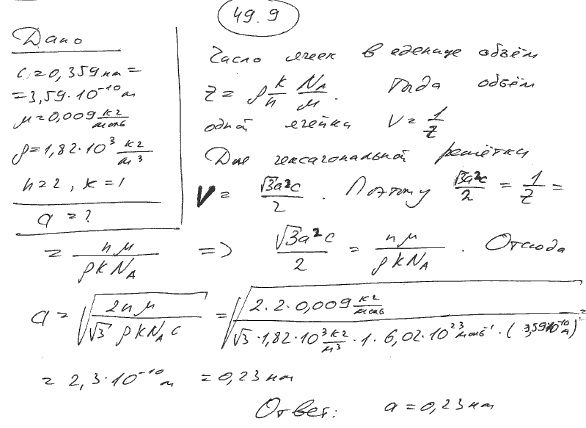 49.9
Дано
c = 0,359 нм =
= 3,59·10⁻¹⁰ м
μ = 0,009 кг/моль
ρ = 1,82·10³ кг/м³
n = 2, k = 1
a = ?
Число ячеек в еденице объём
Z = ρ k/n N_A/μ. Тогда объём
одной ячейки V = 1/Z
Для гексагональной решётки
V = √3a²c/2. Поэтому √3a²c/2 = 1/Z =
= nμ/ρkN_A => √3a²c/2 = nμ/ρkN_A. Отсюда
a = √(2nμ/√3 ρkN_A c) = √(2·2·0,009 кг/моль / √3·1,82·10³ кг/м³·1·6,02·10²³ моль⁻¹·(3,59·10⁻¹⁰ м)) =
= 2,3·10⁻¹⁰ м = 0,23 нм
Ответ: a = 0,23 нм